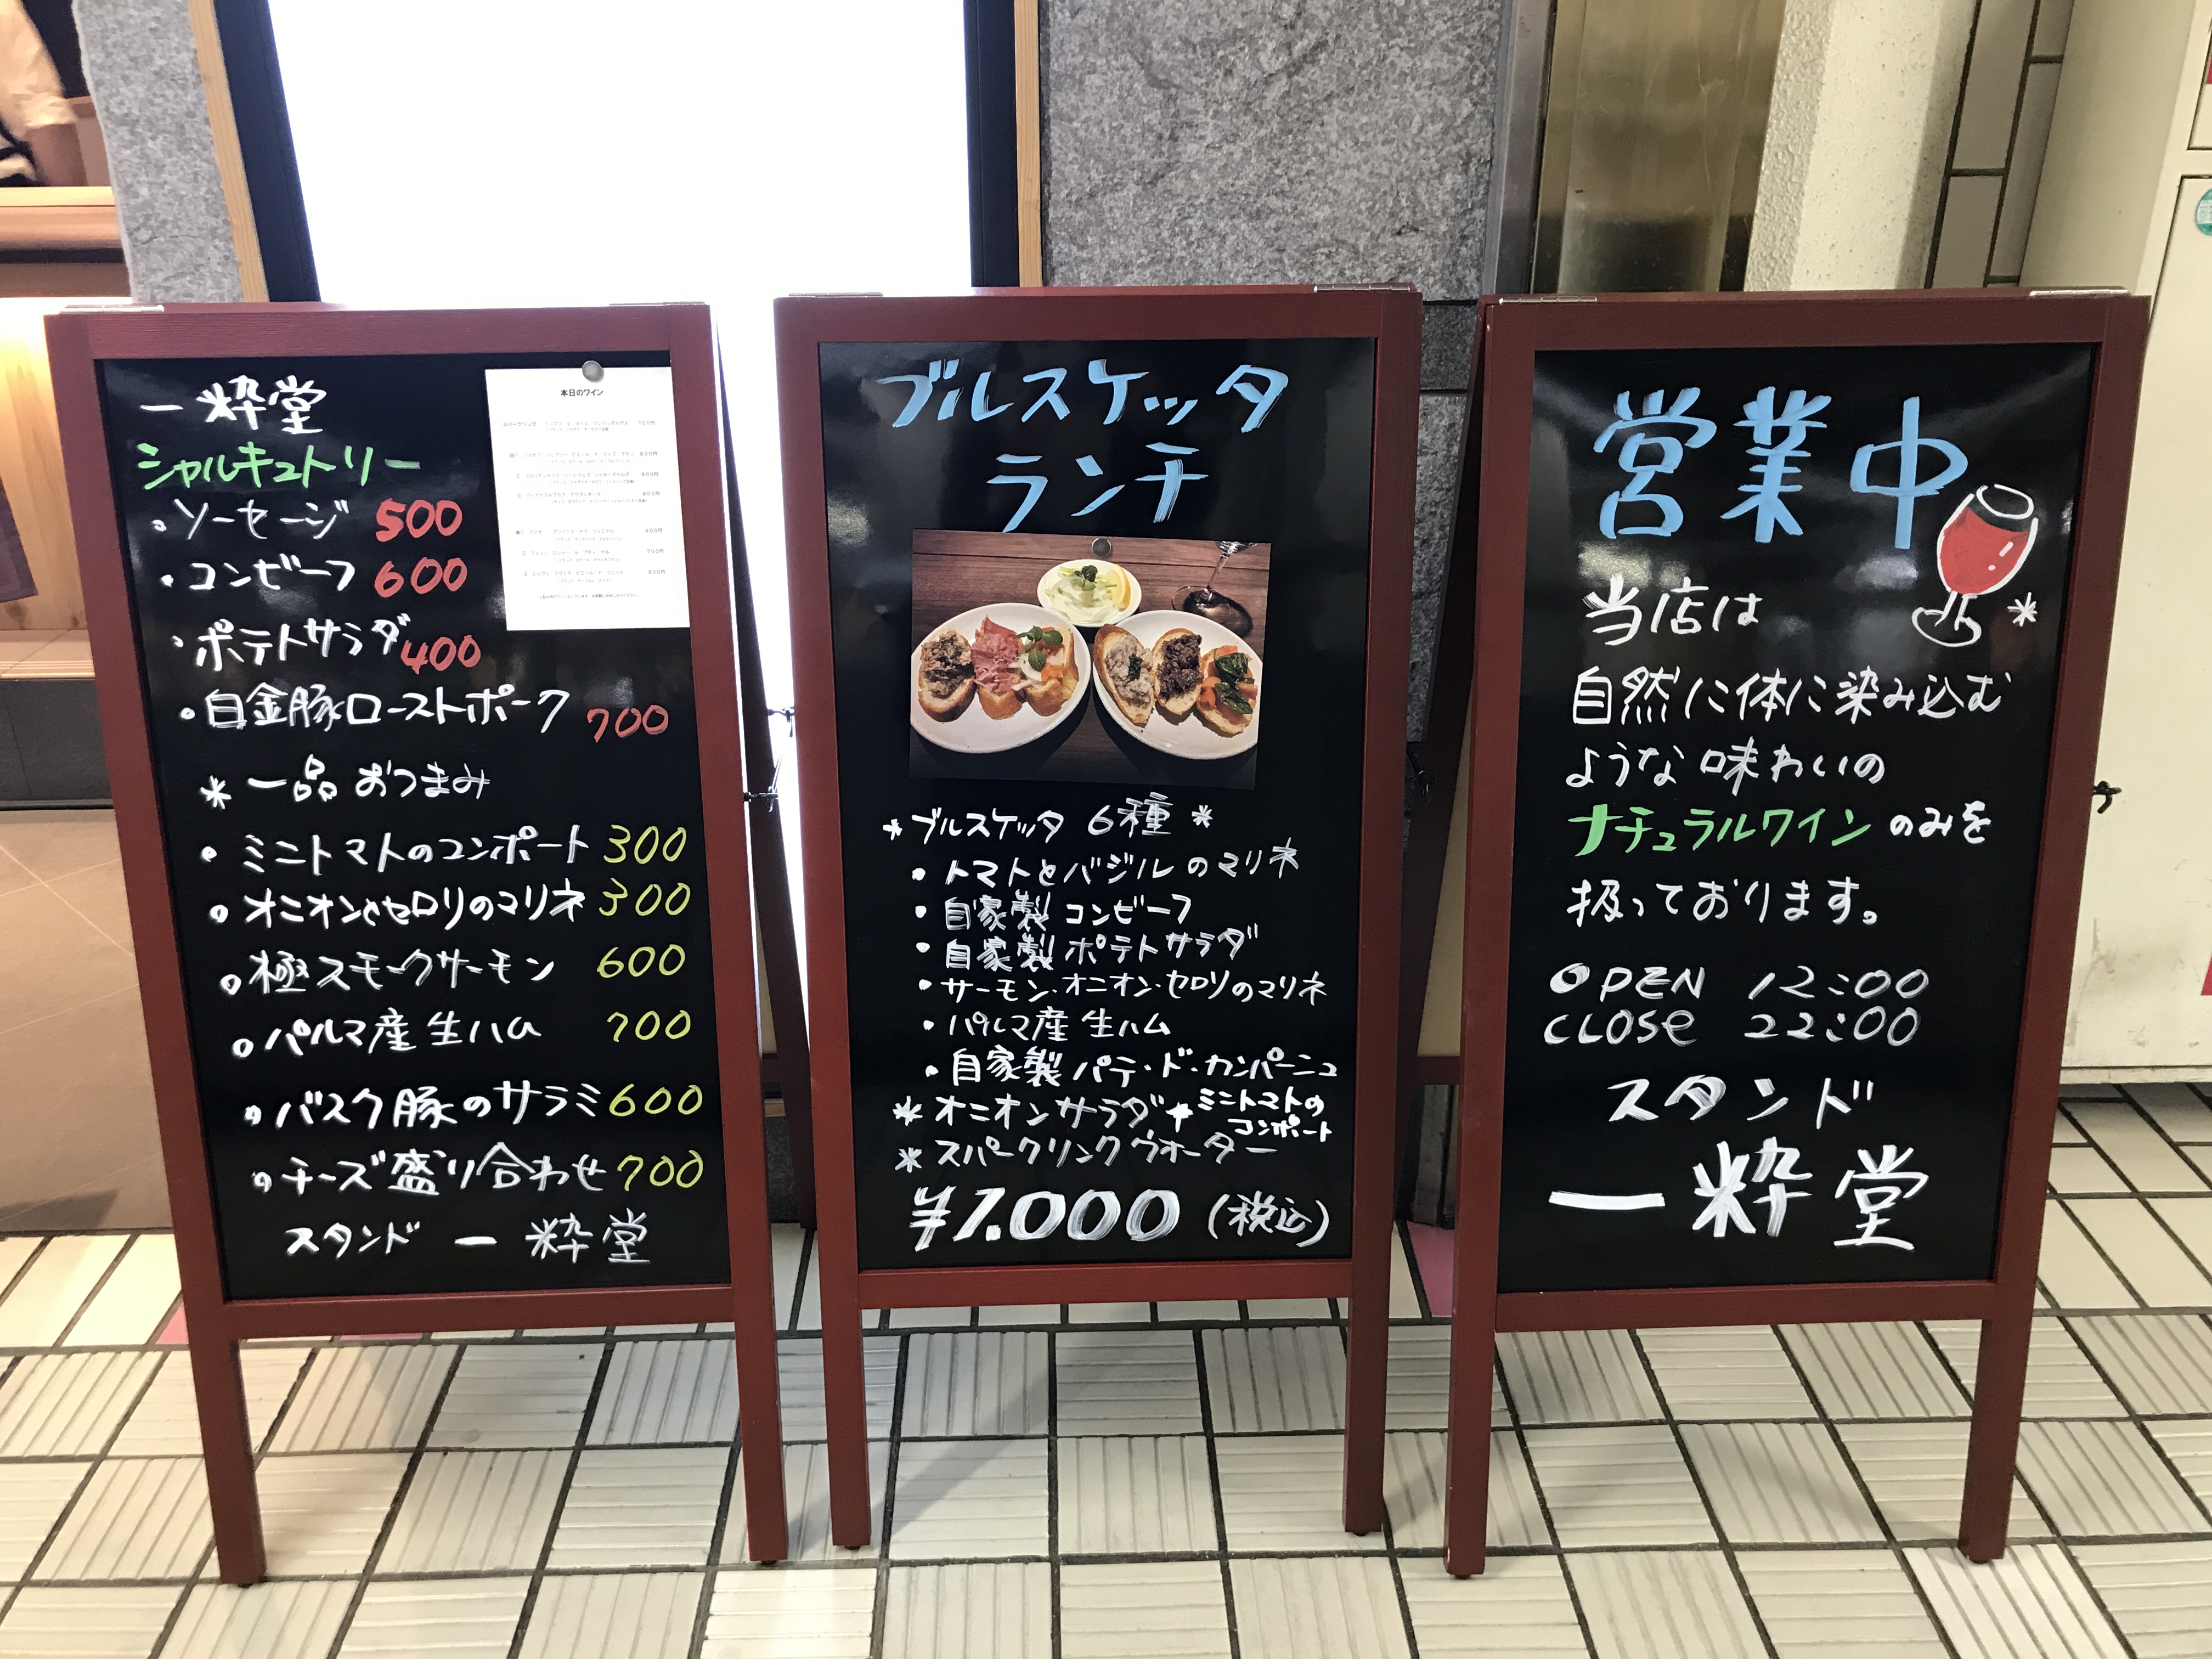 一粋堂
シャルキュトリー
・ソーセージ 500
・コンビーフ 600
・ポテトサラダ 400
・白金豚ローストポーク 700
* 一品おつまみ
・ミニトマトのコンポート 300
・オニオンとセロリのマリネ 300
・極スモークサーモン 600
・パルマ産生ハム 700
・バスク豚のサラミ 600
・チーズ盛り合わせ 700
スタンド 一粋堂
本日のワイン
スパークリング
700円
800円
600円
800円
800円
700円
900円
ブルスケッタ
ランチ
*ブルスケッタ 6種*
・トマトとバジルのマリネ
・自家製コンビーフ
・自家製ポテトサラダ
・サーモン・オニオン・セロリのマリネ
・パルマ産生ハム
・自家製パテ・ド・カンパーニュ
*オニオンサラダ+ミニトマトの
コンポート
*スパークリングウオーター
¥1.000(税込)
営業中
当店は
自然に体に染み込む
ような味わいの
ナチュラルワインのみを
扱っております。
OPEN 12:00
CLOSE 22:00
スタンド
一粋堂